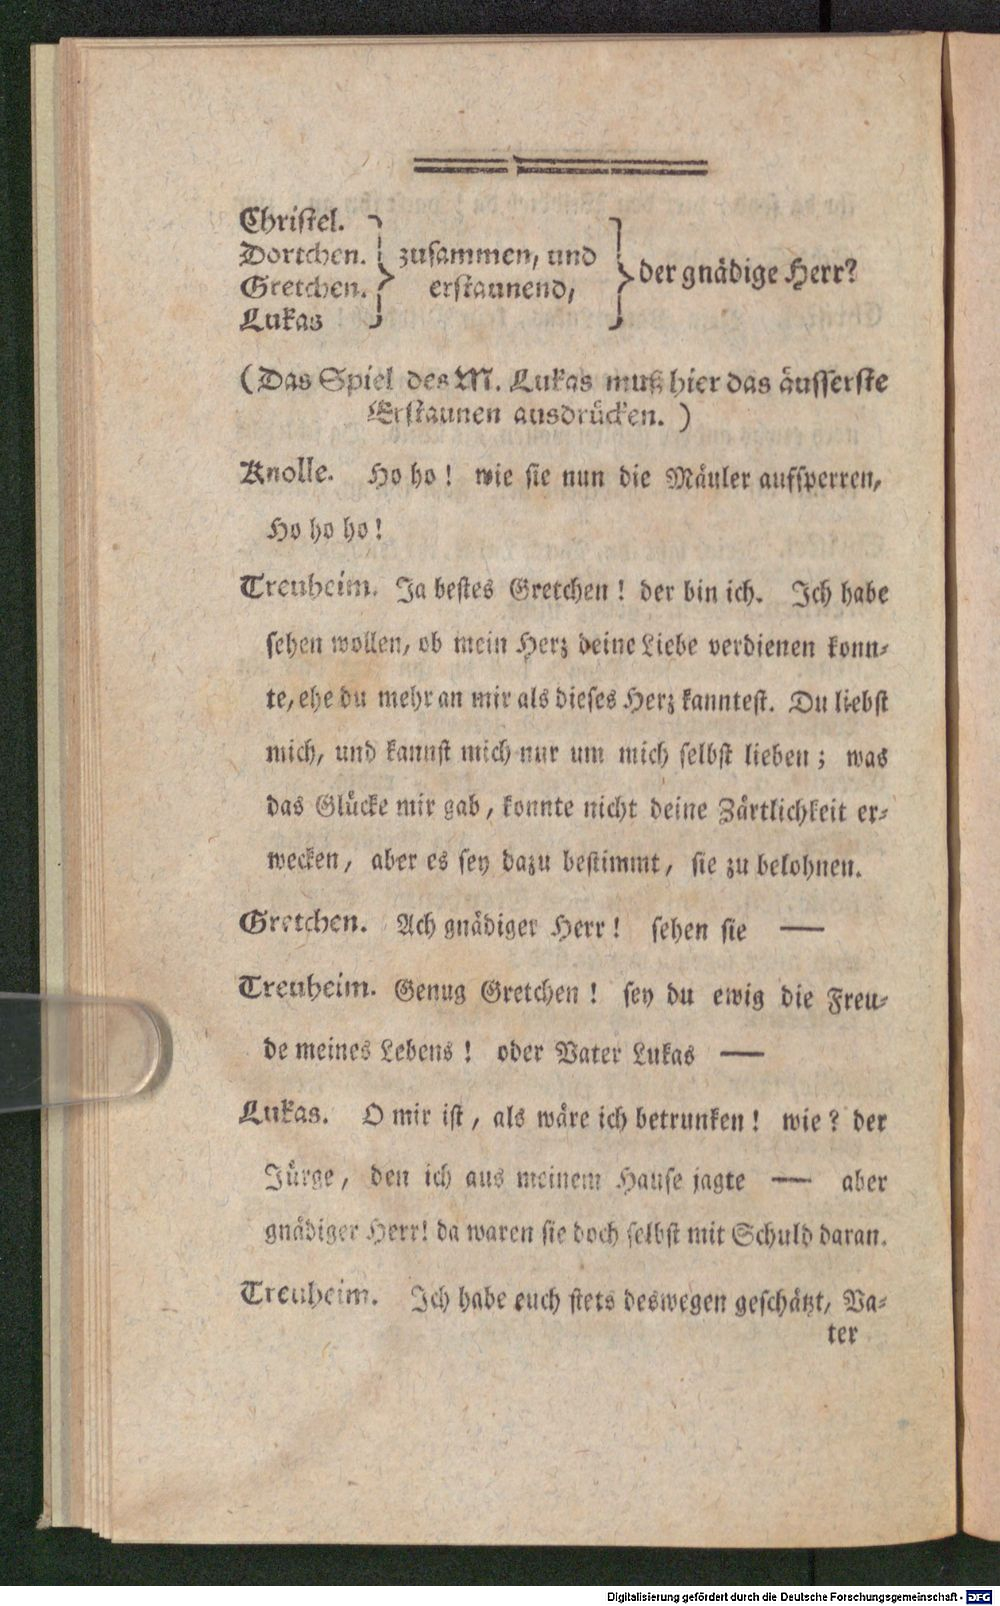 Christel.
Dortchen. zusammen, und
Gretchen. erstaunend, der gnädige Herr?
Lukas
(Das Spiel des M. Lukas muß hier das äusserste
Erstaunen ausdrücken. )
Knolle. Ho ho! wie sie nun die Mäuler aufsperren,
Ho ho ho!
Treuheim. Ja bestes Gretchen! der bin ich. Ich habe
sehen wollen, ob mein Herz deine Liebe verdienen konn-
te, ehe du mehr an mir als dieses Herz kanntest. Du liebst
mich, und kannst mich nur um mich selbst lieben; was
das Glücke mir gab, konnte nicht deine Zärtlichkeit er-
wecken, aber es sey dazu bestimmt, sie zu belohnen.
Gretchen. Ach gnädiger Herr! sehen sie —
Treuheim. Genug Gretchen! sey du ewig die Freu-
de meines Lebens! oder Vater Lukas —
Lukas. O mir ist, als wäre ich betrunken! wie? der
Jürge, den ich aus meinem Hause jagte — aber
gnädiger Herr! da waren sie doch selbst mit Schuld daran.
Treuheim. Ich habe euch stets deswegen geschätzt, Va-
ter
Digitalisierung gefördert durch die Deutsche Forschungsgemeinschaft - DFG